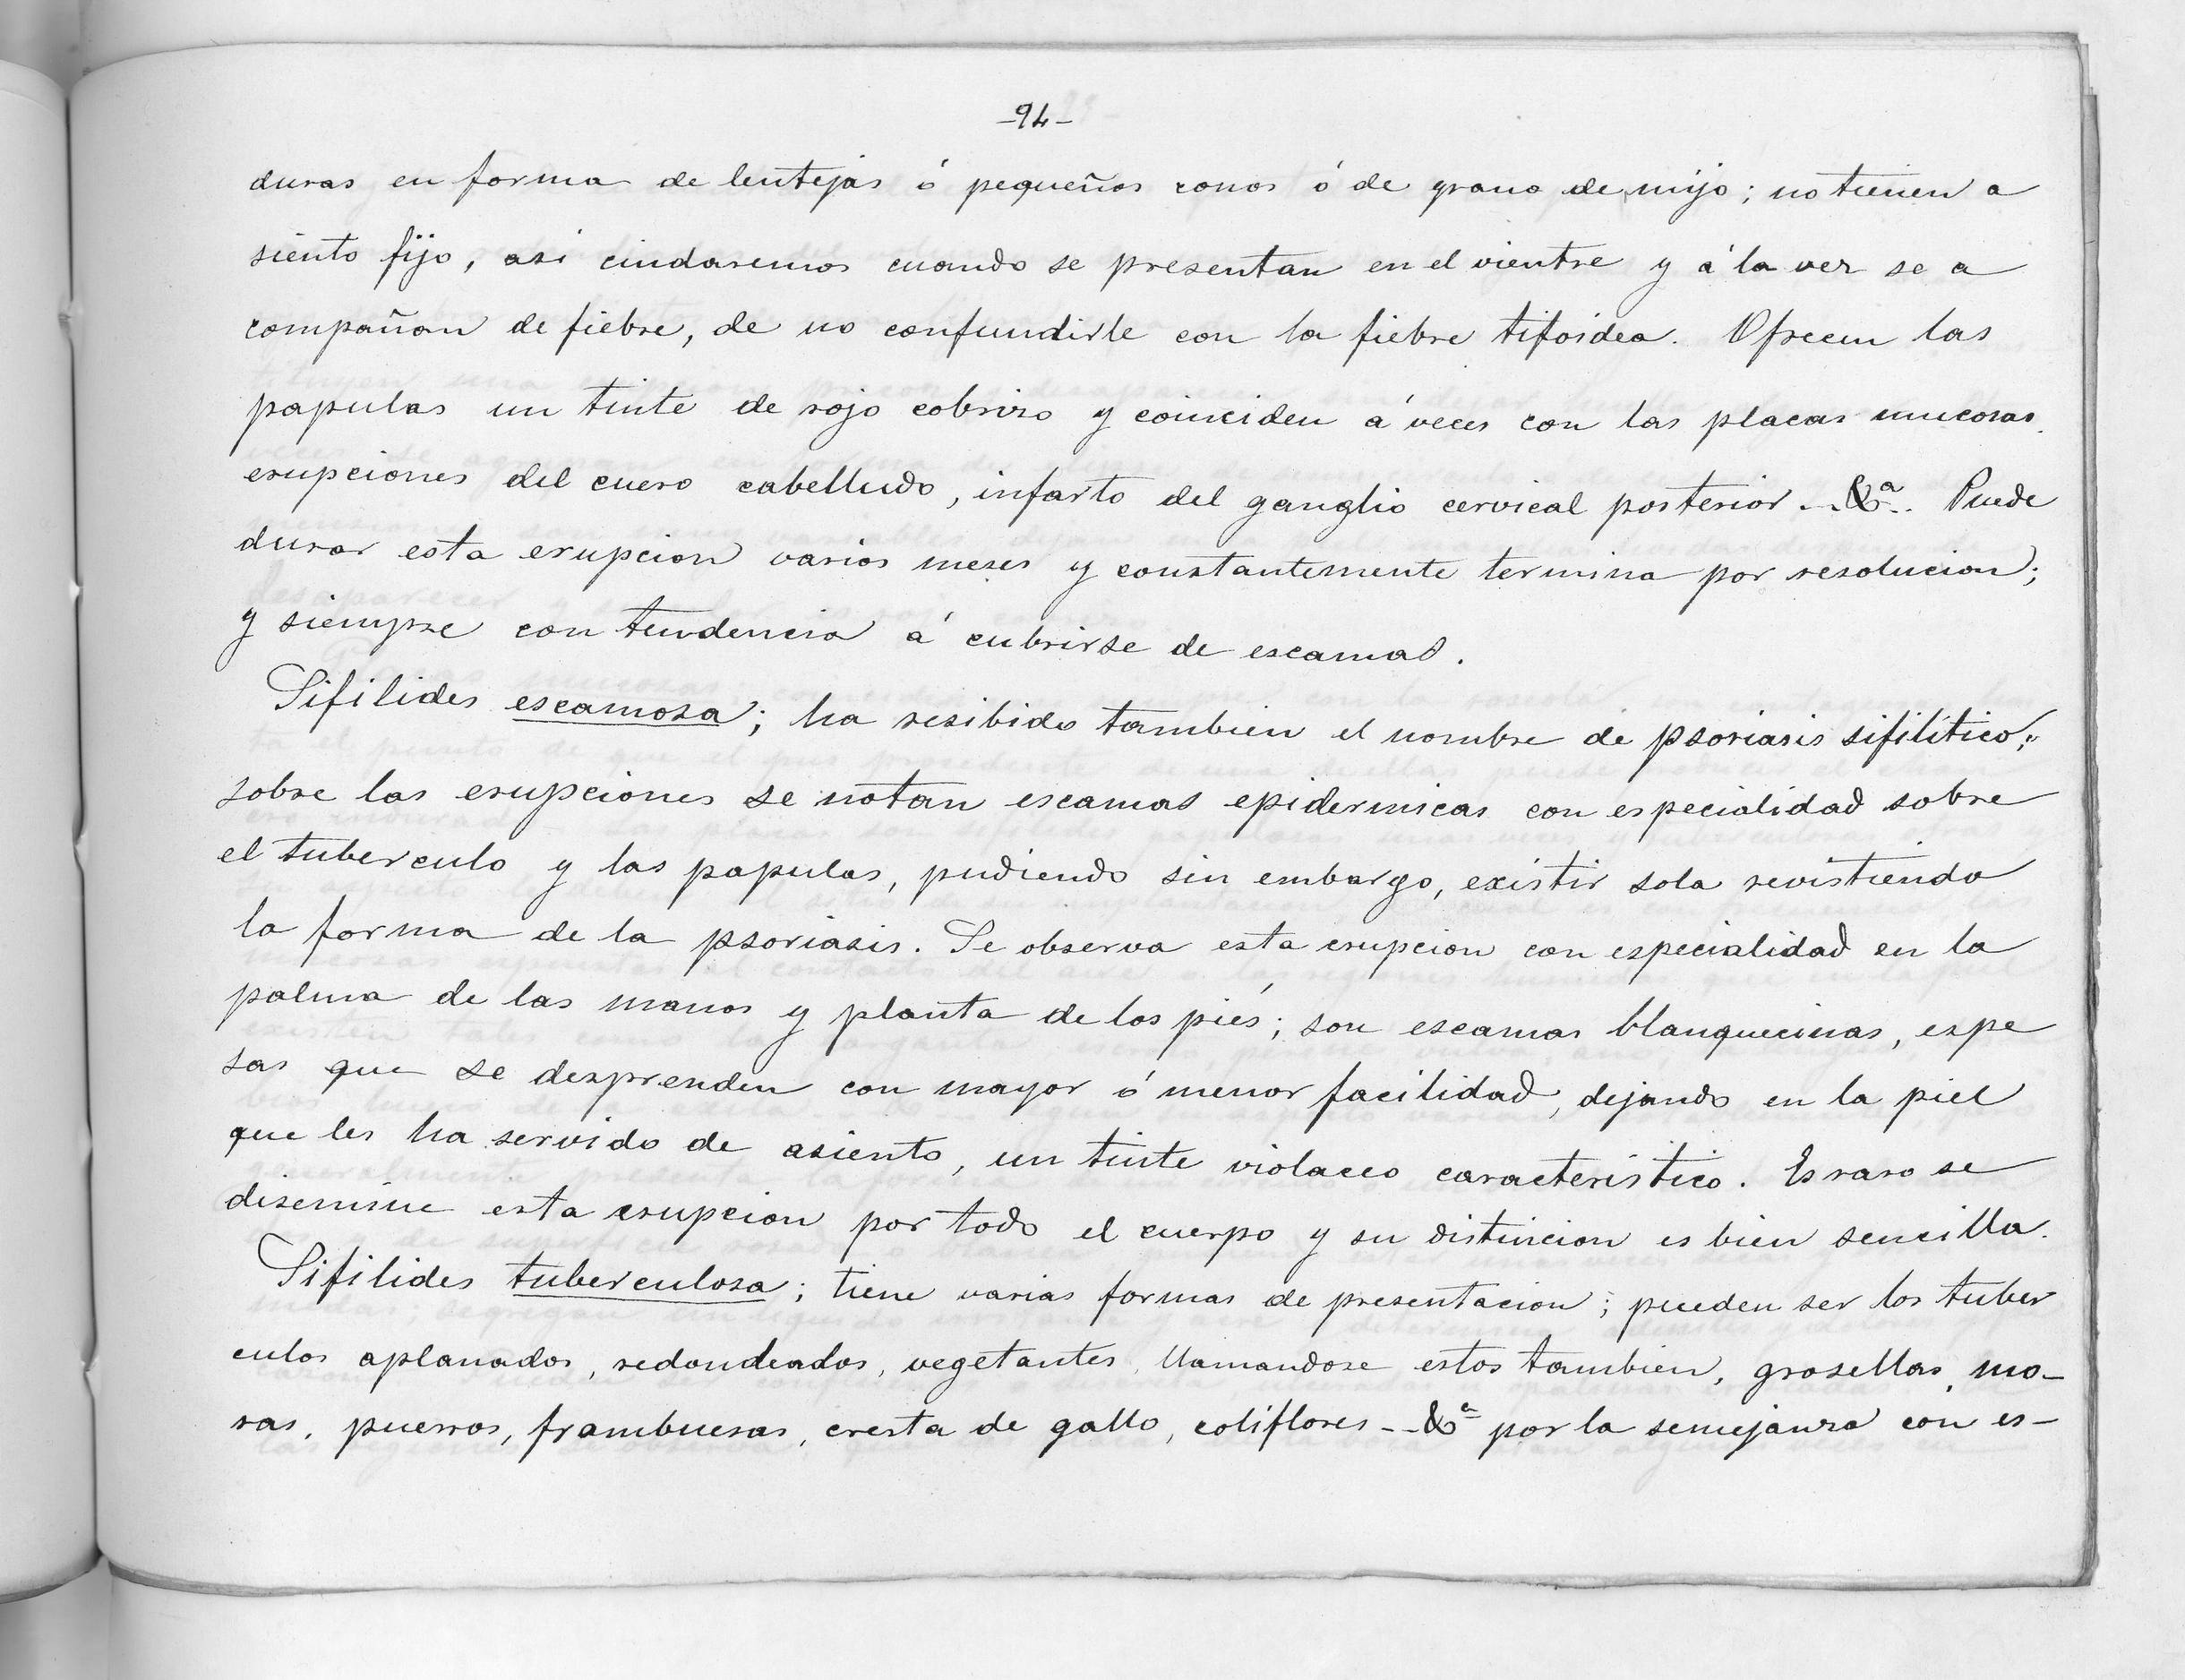 -94-
duras en forma de lentejas ó pequeños conos ó de grano de mijo; no tienen a
siento fijo, asi cuidaremos cuando se presentan en el vientre y á la vez se a
compañan de fiebre, de no confundirle con la fiebre tifoidea. Ofrecen las
papulas un tinte de rojo cobrizo y coinciden á veces con las placas mucosas,
erupciones del cuero cabelludo, infarto del ganglio cervical posterior..&ª.. Puede
durar esta erupcion varios meses y constantemente termina por resolucion;
y siempre con tendencia á cubrirse de escamas.
Sifilides escamosa; ha resibido tambien el nombre de psoriasis sifilítico;"
sobre las erupciones se notan escamas epidermicas con especialidad sobre
el tuberculo y las papulas, pudiendo sin embargo, existir sola revistiendo
la forma de la psoriasis. Se observa esta erupcion con especialidad en la
palma de las manos y planta de los piés; son escamas blanquecinas, espe
sas que se desprenden con mayor ó menor facilidad, dejando en la piel
que les ha servido de asiento, un tinte violaceo caracteristico. Es raro se
disemine esta erupcion por todo el cuerpo y su distincion es bien sencilla.
Sifilides tuberculosa; tiene varias formas de presentacion; pueden ser los tuber
culos aplanados, redondeados, vegetantes, llamandose estos tambien, grosellas, mo-
ras, puerros, frambuesas, cresta de gallo, coliflores--&ª por la semejanza con es-